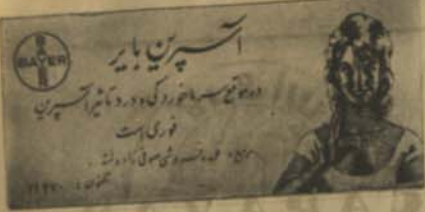 BAYER
آسپرین بایر
در موقع سرماخوردگی و درد تاثیر آسپرین
فوری است
تلفون: